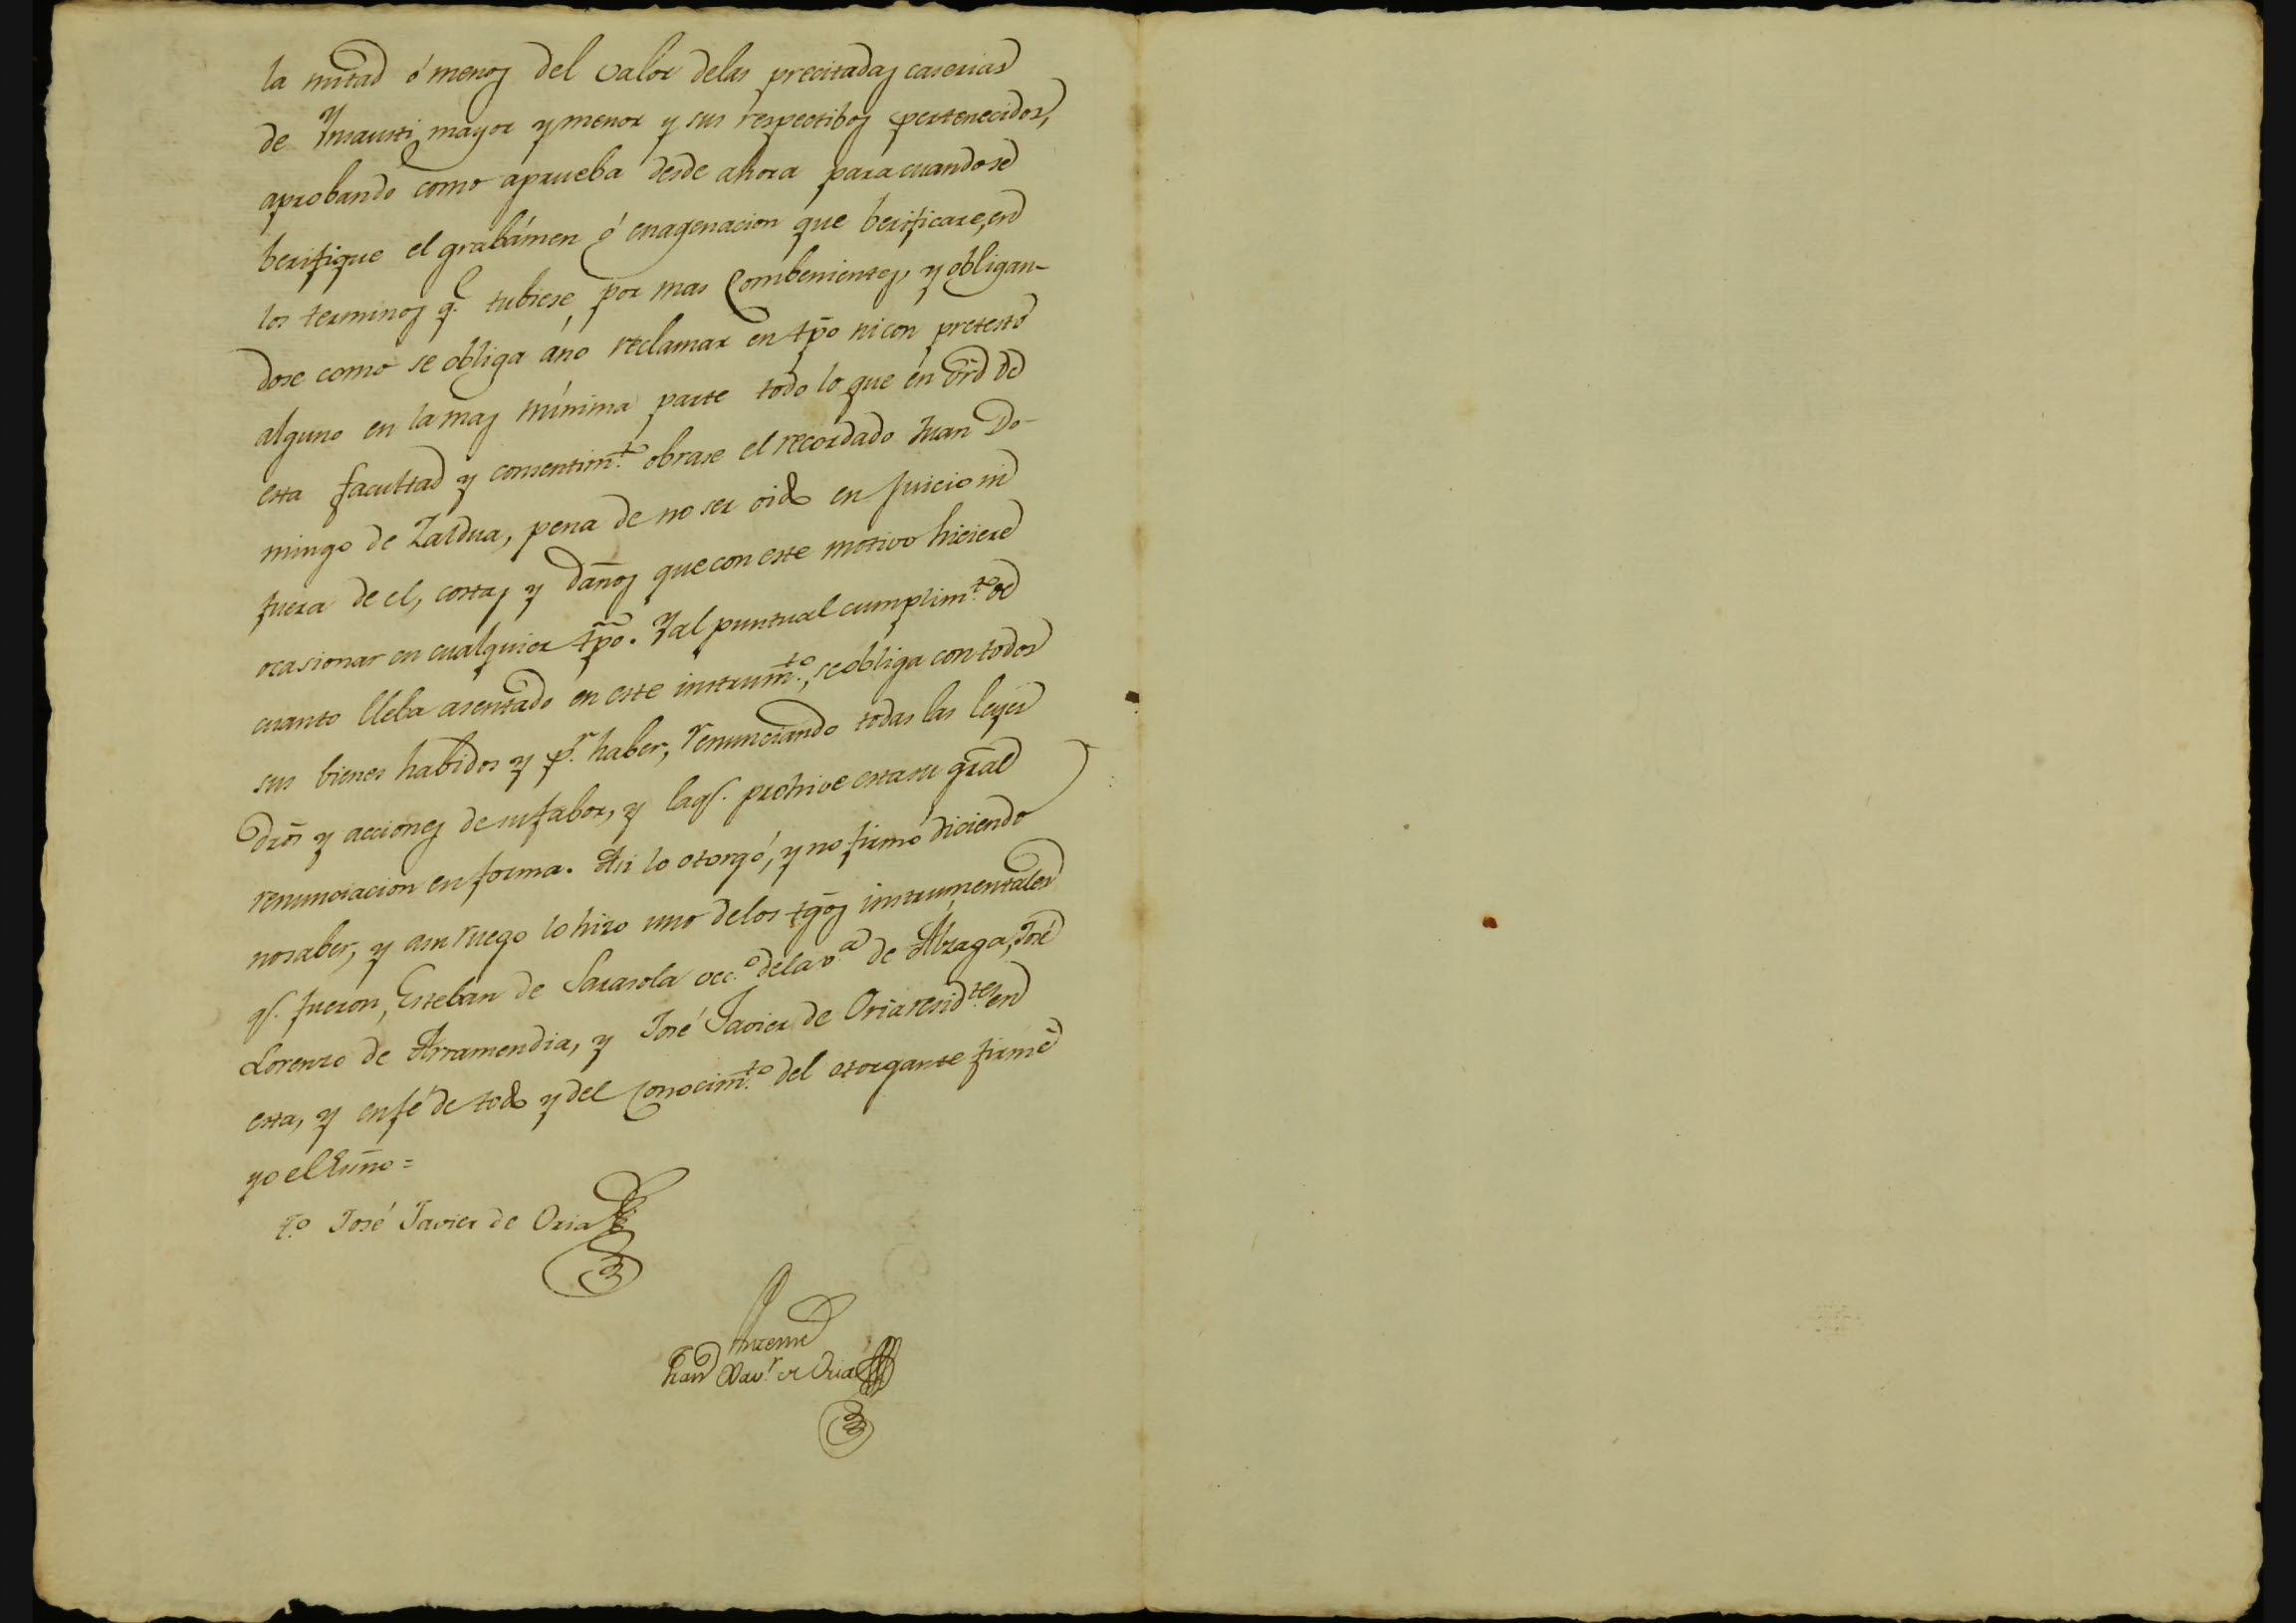 la mitad ó menos del valor delas precitadas caserias
de Ynsausti mayor y menor y sus respectibos pertenecidos,
aprobando como aprueba desde ahora para cuando se
berifique el grabámen ó enagenacion que berificare, en
los terminos q.e tubiese por mas combenientes, y obligan-
dose como se obliga áno reclamar en tpō ni con pretesto
alguno en la mas mínima parte todo lo que en vīrd de
esta facultad y consentim.to obrase el recordado Juan Do-
mingo de Zaldua, pena de no ser oido en Juicio ni
fuera de el, costas y daños que con este motivo hiciere
ocasionar en cualquier tpō. Y al puntual cumplim.to de
cuanto lleba asentado en este instrum.to, se obliga con todos
sus bienes habidos y p.r haber, renunciando todas las leyes
drōs y acciones de su fabor, y la qs. prohive esta su grāl
renunciacion en forma. Asi lo otorgó, y no firmó diciendo
no saber, y asu ruego lo hizo uno delos tgōs instrumentales
qs. fueron, Esteban de Sarasola vec.o dela v.a de Alzaga, José
Lorenzo de Arramendia, y José Javier de Oria resid.tes en
esta, y en fé de todo y del conocim.to del otorgante firmé
yo el Esnō =
T.o José Javier de Oria
Antemi
Fran Xav.r de Oria